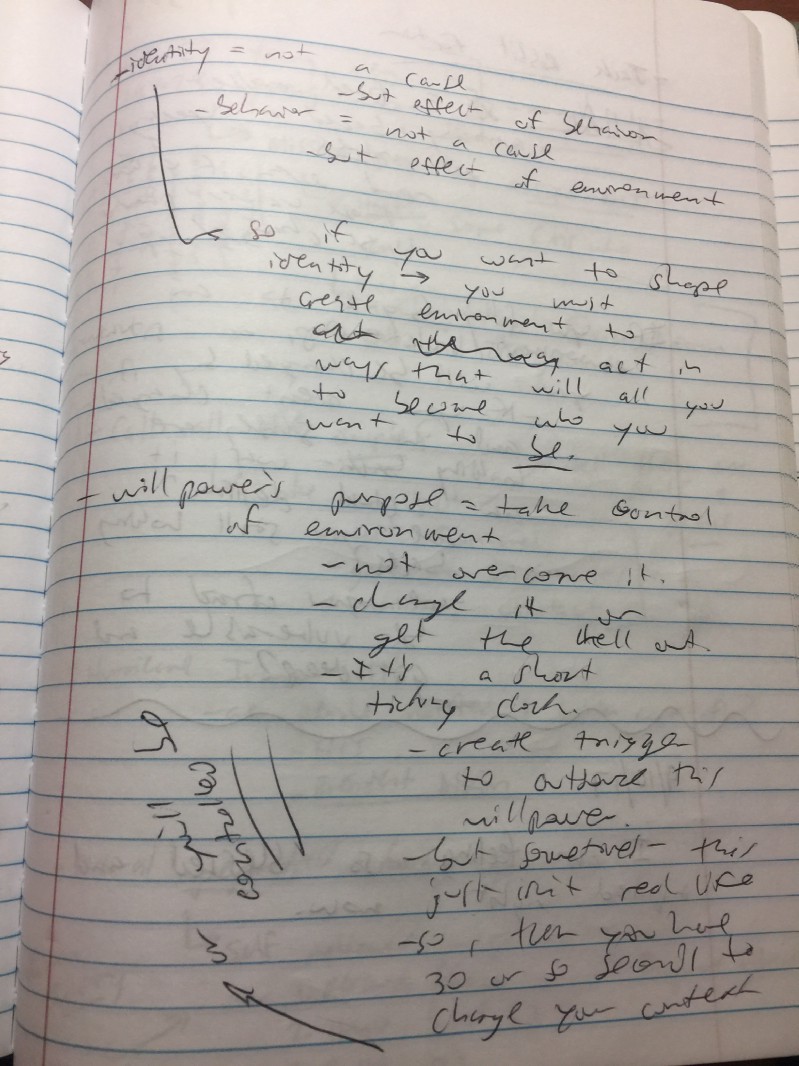 - identity = not a cause
- but effect of behavior
- behavior = not a cause
- but effect of environment
so if you want to shape
identity → you must
create environment to
act in
ways that will all you
to become who you
want to be.
- willpower's purpose = take control
of environment
- not overcome it.
- change it or
get the hell out.
- It's a short
ticking clock.
- create trigger
to outsource this
willpower.
- but sometimes - this
just isn't real life
- so, then you have
30 or so seconds to
change your context